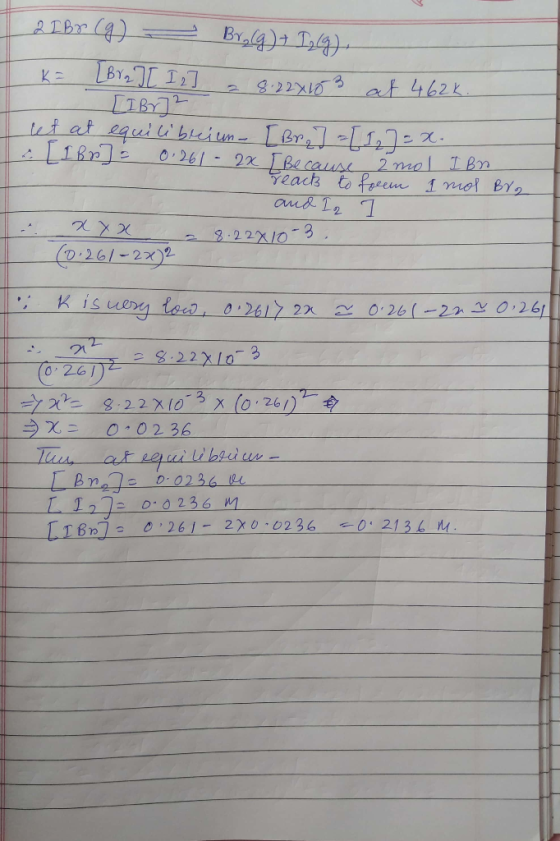 2IBr(g) ⇌ Br₂(g) + I₂(g).
K = [Br₂][I₂] / [IBr]² = 8.22×10⁻³ at 462K.
let at equilibrium- [Br₂] = [I₂] = x.
∴ [IBr] = 0.261 - 2x [Because 2 mol IBr
reacts to form 1 mol Br₂
and I₂ ]
∴ x × x / (0.261-2x)² = 8.22×10⁻³.
∵ K is very low, 0.261 > 2x ≃ 0.261-2x ≃ 0.261
∴ x² / (0.261)² = 8.22×10⁻³
⇒ x² = 8.22×10⁻³ × (0.261)²
⇒ x = 0.0236
Thus at equilibrium-
[Br₂] = 0.0236 M
[I₂] = 0.0236 M
[IBr] = 0.261 - 2×0.0236 = 0.2136 M.